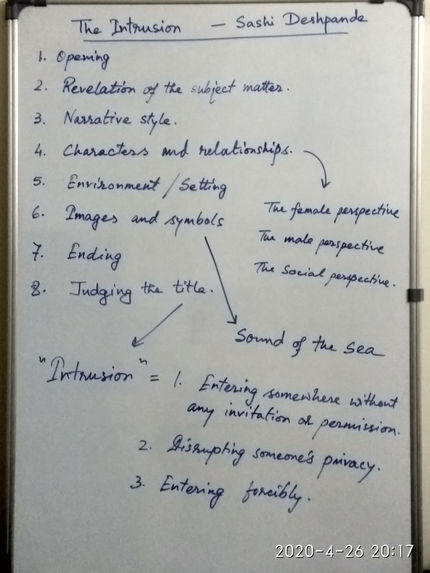 The Intrusion — Sashi Deshpande
1. Opening
2. Revelation of the subject matter.
3. Narrative style.
4. Characters and relationships.
5. Environment / Setting
6. Images and symbols
7. Ending
8. Judging the title.
The female perspective
The male perspective
The Social perspective.
Sound of the Sea
"Intrusion" = 1. Entering somewhere without
any invitation or permission.
2. Disrupting someone's privacy.
3. Entering forcibly.
2020-4-26 20:17